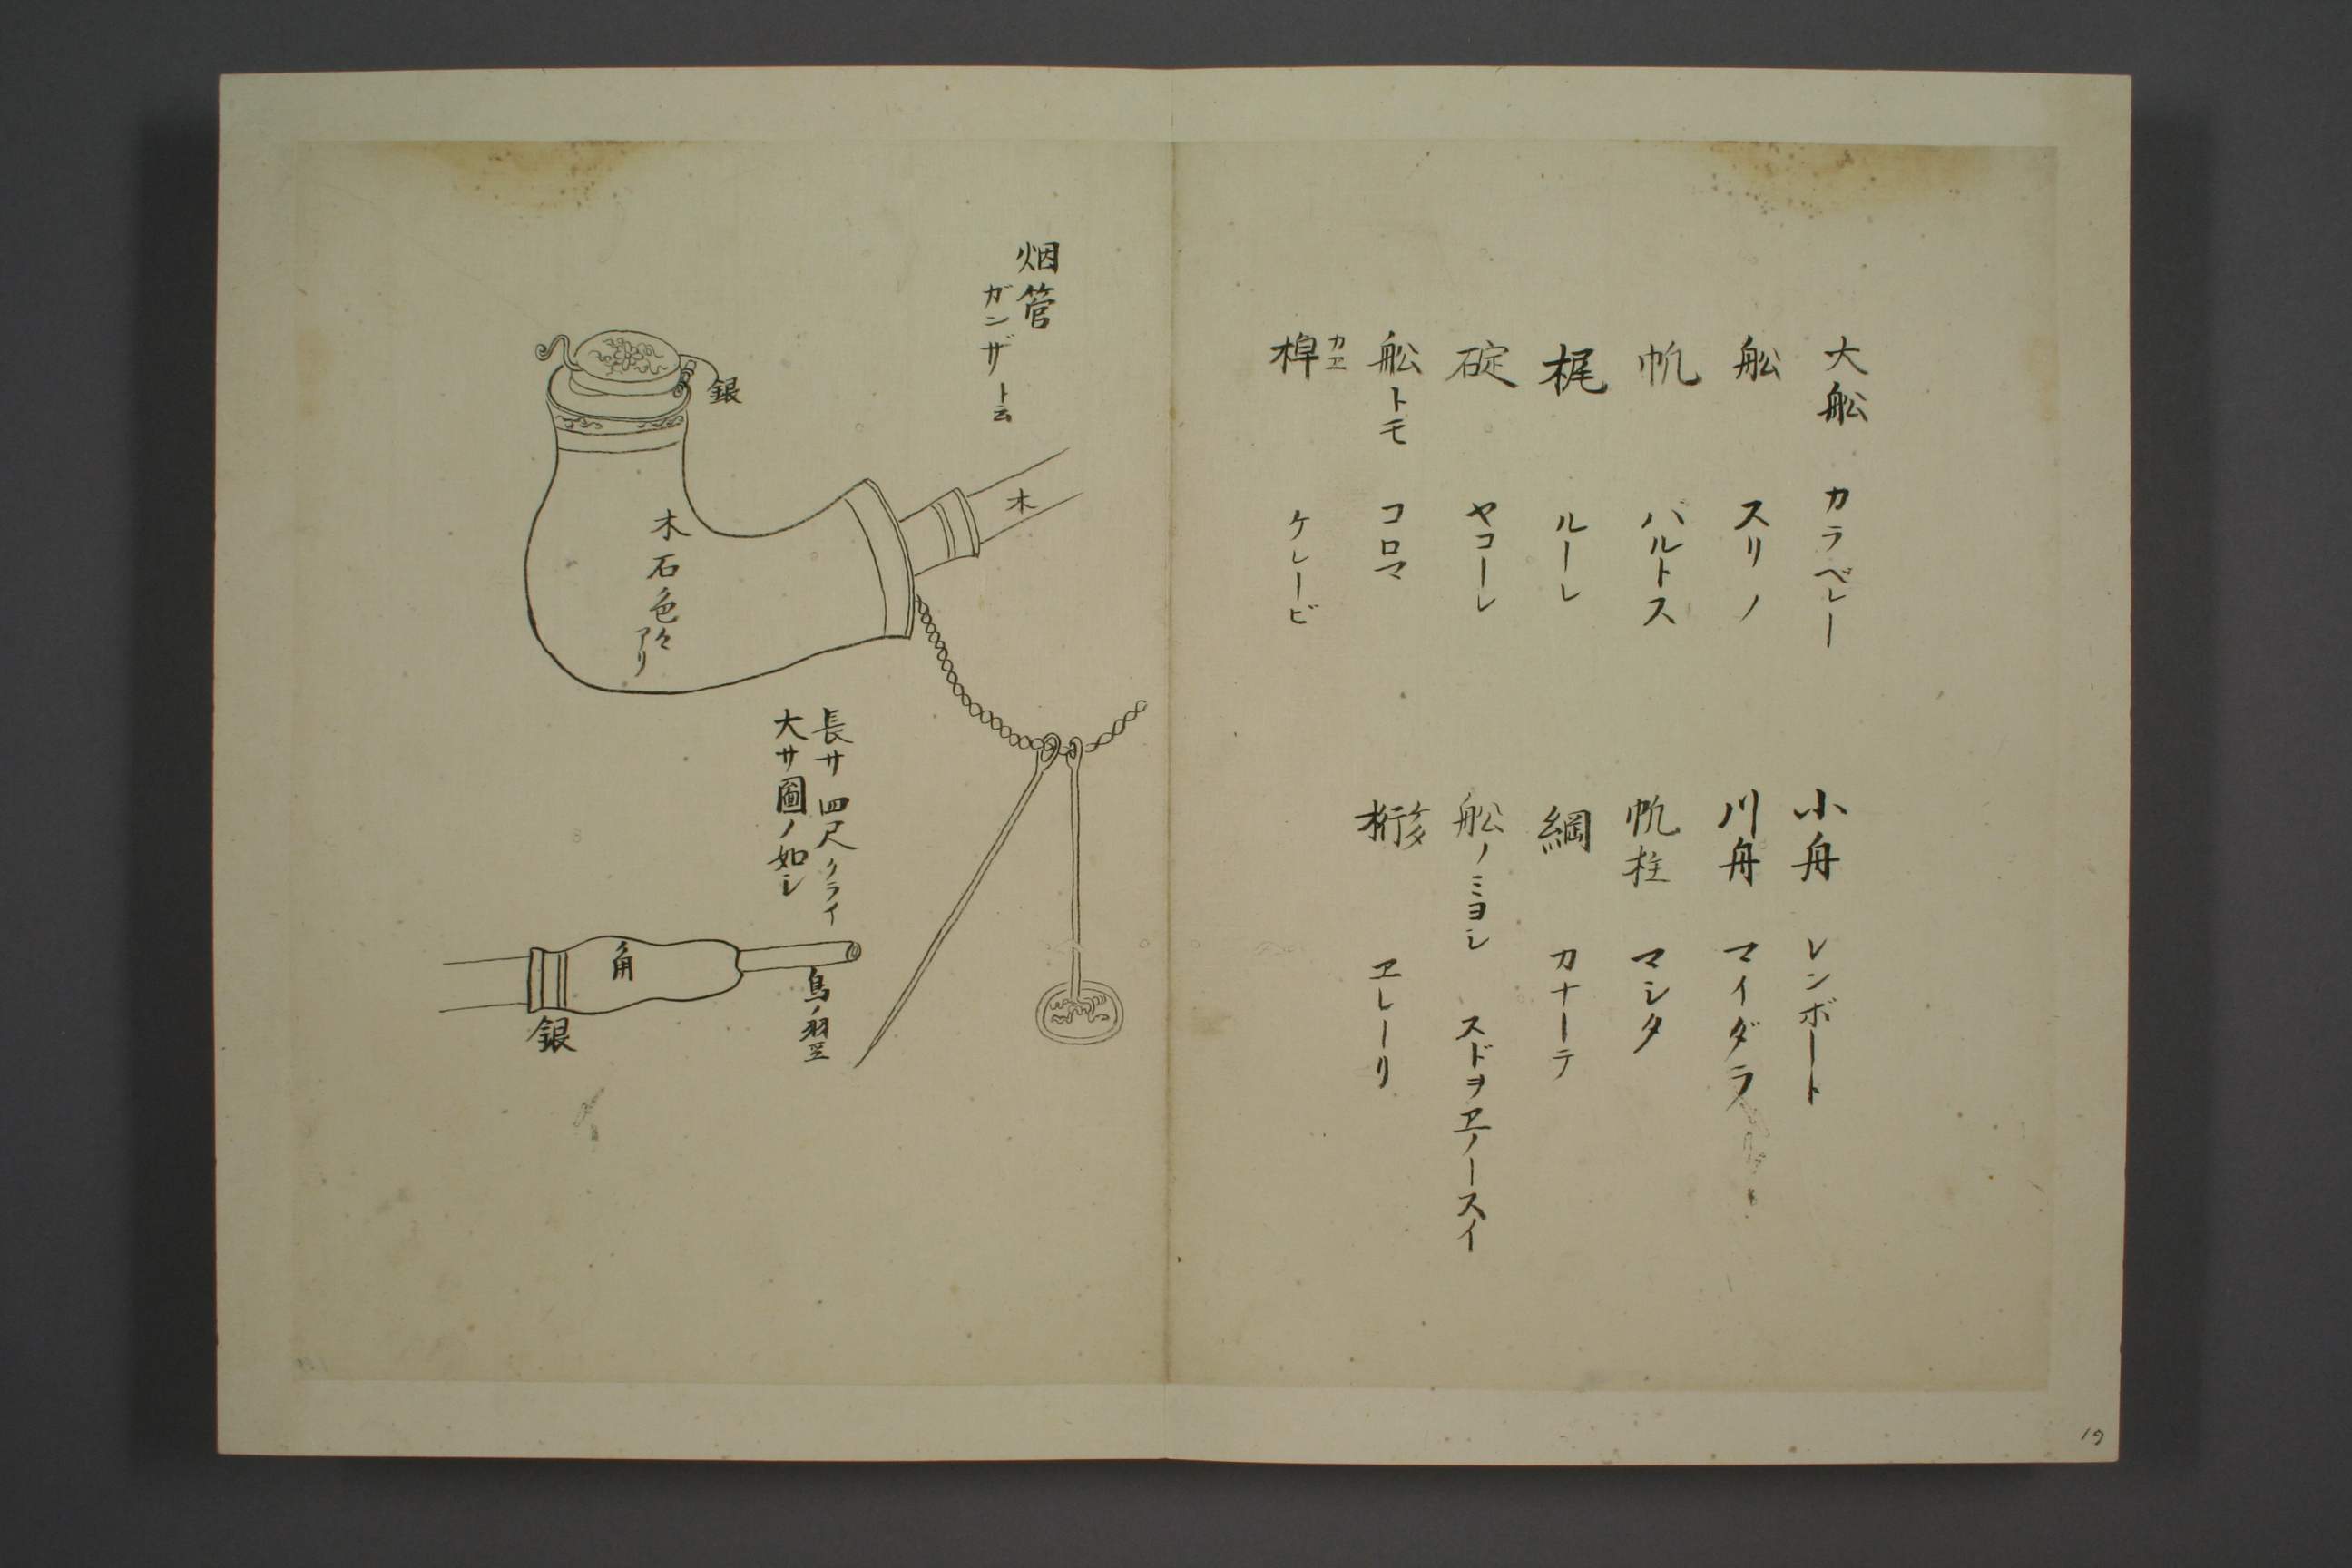 大舩 カラベレー
舩 スリノ
帆 バルトス
梶 ルーレ
碇 ヤコーレ
舩トモ コロマ
カヱ
橰 ケレービ
小舟 レンボート
川舟 マイダラ
帆柱 マシタ
綱 カナーテ
舩ノミヨシ スドヲヱノースイ
桁 ケタ ヱレーリ
烟管
ガンザト云
銀
木
木石色々
アリ
長サ四尺クライ
大サ圖ノ如シ
角
銀
鳥ノ翌
19